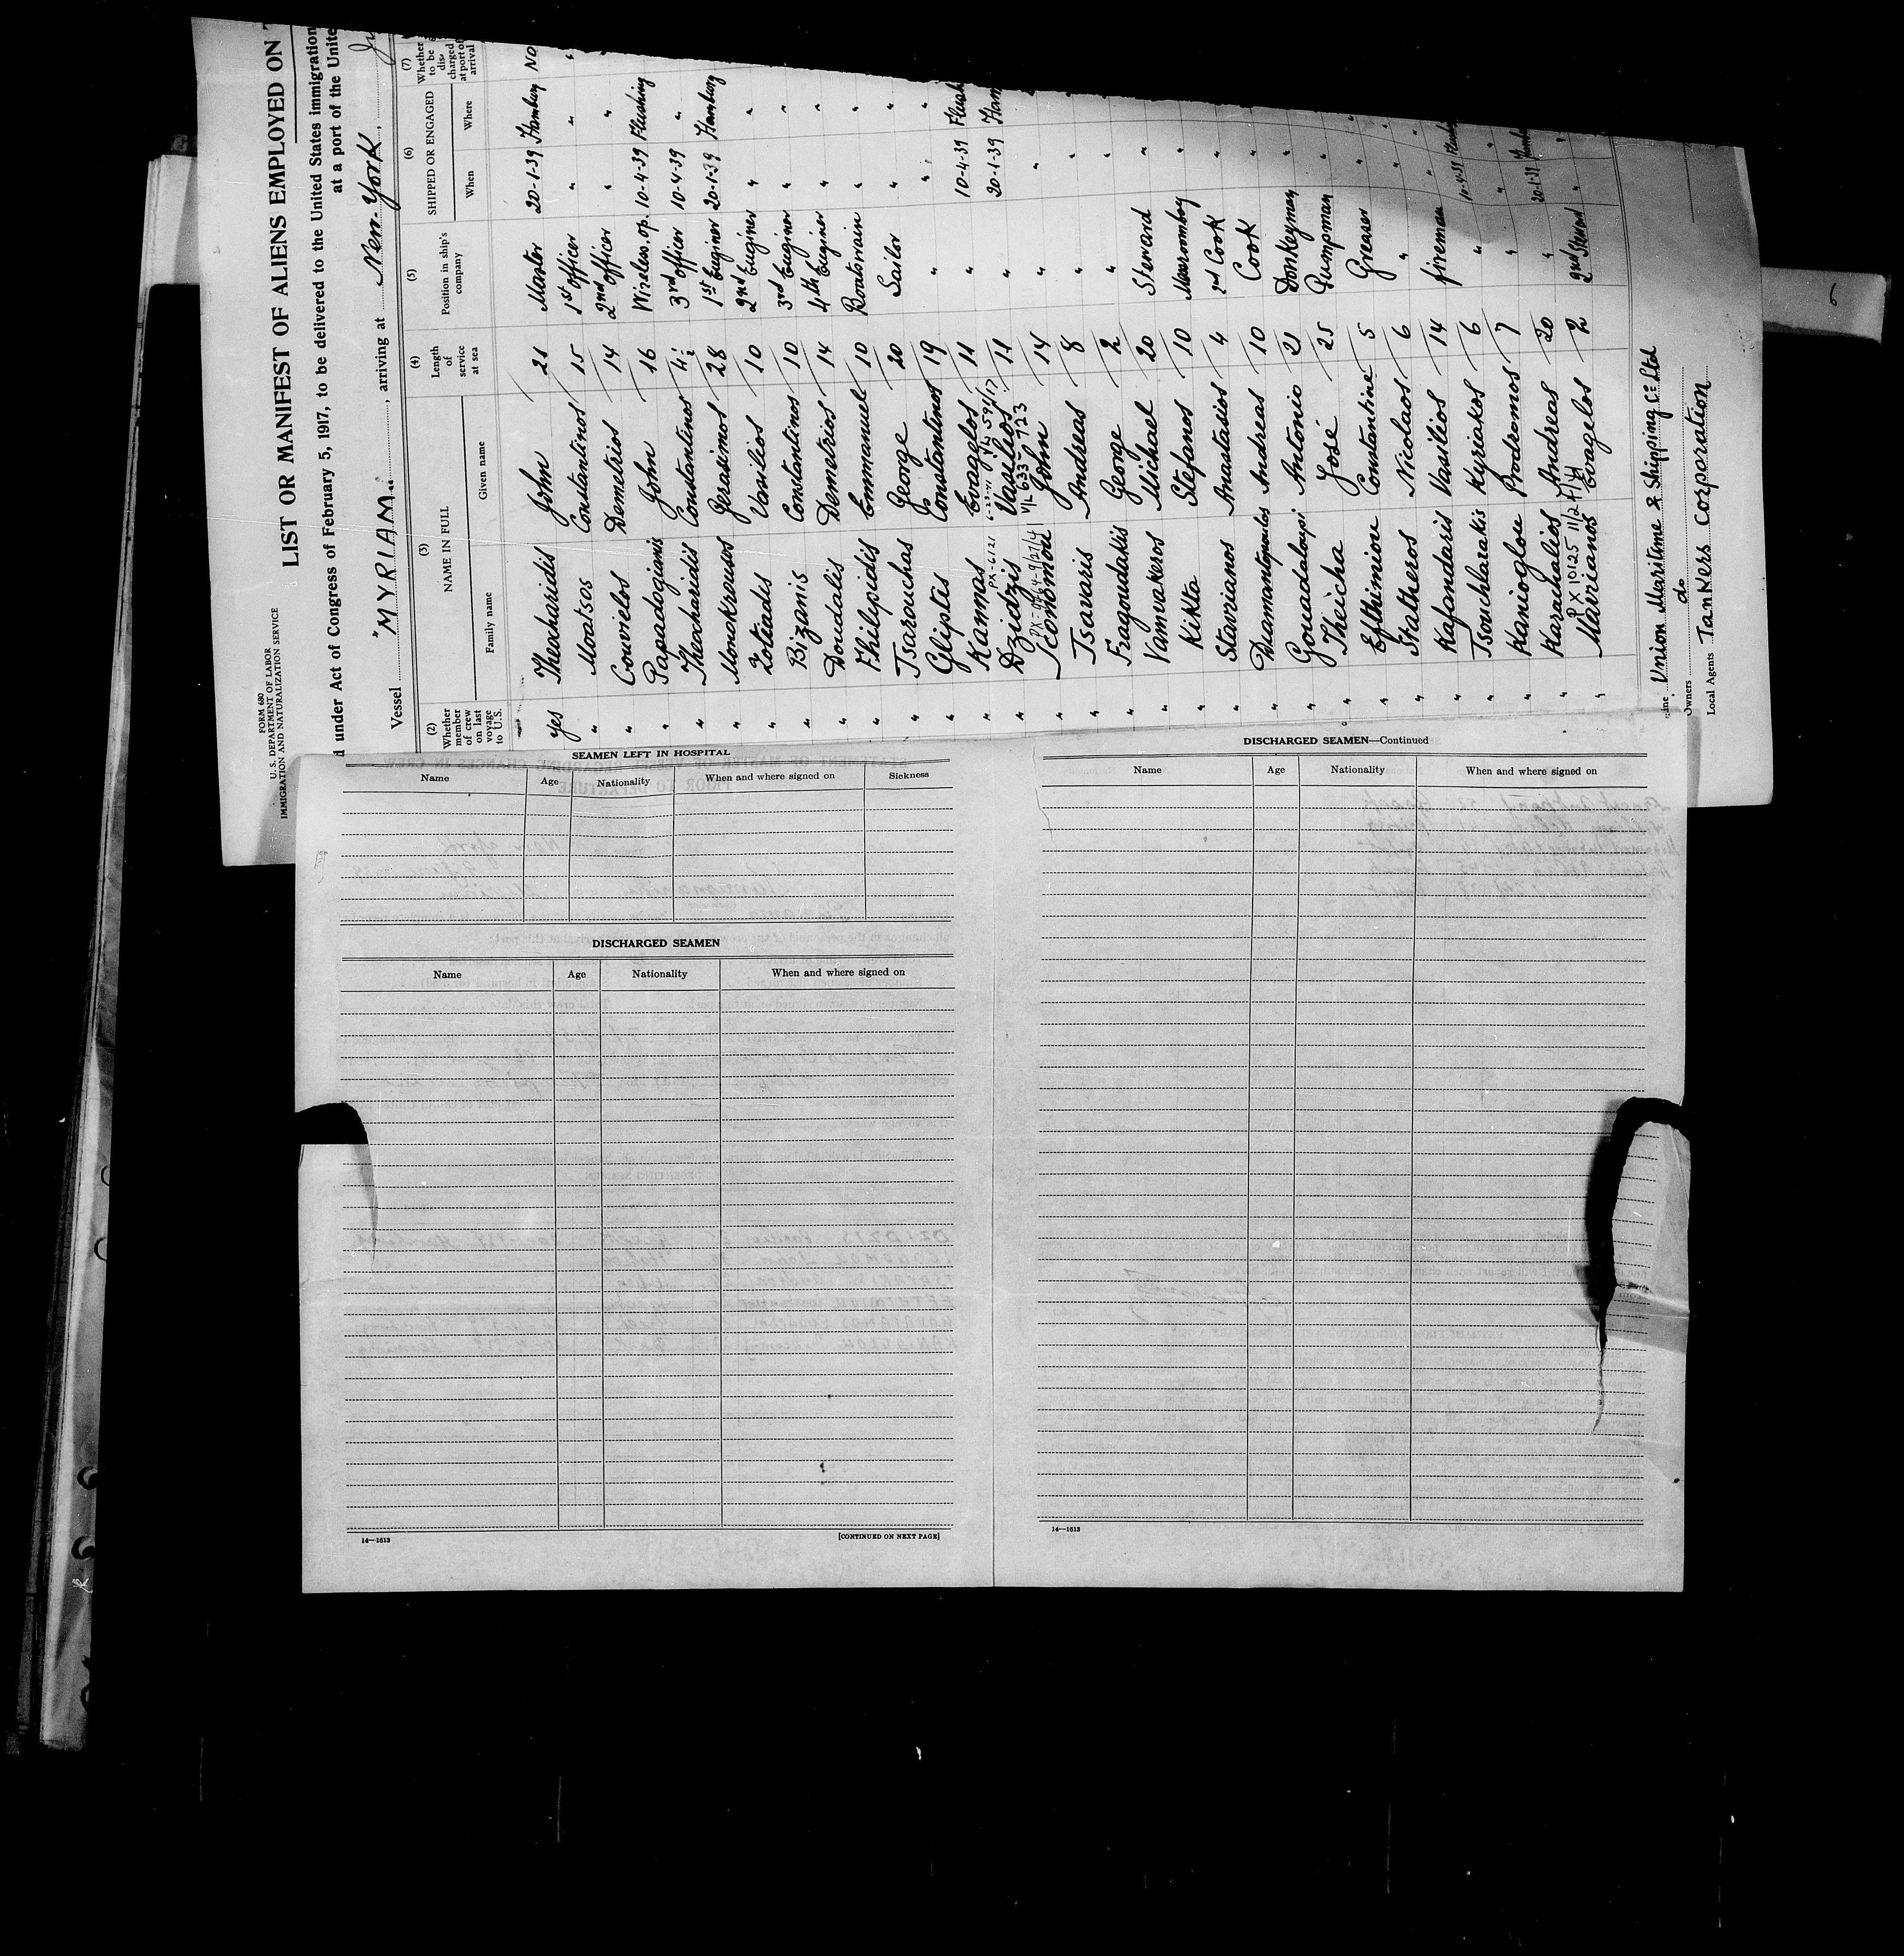 FORM 680
U. S. DEPARTMENT OF LABOR
IMMIGRATION AND NATURALIZATION SERVICE
LIST OR MANIFEST OF ALIENS EMPLOYED ON
d under Act of Congress of February 5, 1917, to be delivered to the United States immigration
at a port of the Unite
Vessel "MYRIAM" , arriving at New-York ,
(2) Whether member of crew on last voyage to U.S. (3) NAME IN FULL Family name Given name (4) Length of service at sea (5) Position in ship's company (6) SHIPPED OR ENGAGED When Where (7) Whether to be discharged at port of arrival
yes Theoharidis John 21 Master 20-1-39 Hamburg No
" Moatsos Constantinos 15 1st officer " " "
" Couvielos Demetrios 14 2nd officer " "
" Papadogianis John 16 Wireless. op. 10-4-39 Flushing
" Theoharidis Constantinos 4 3rd officer 10-4-39 "
" Monokrousos Gerasimos 28 1st Enginer 20-1-39 Hamburg
" Zotiadis Vasilios 10 2nd Enginer " "
" Bizanis Constantinos 10 3rd Enginer " "
" Doudalis Demetrios 14 4th Enginer " "
" Philipidis Emmanuel 10 Boatsvain " "
" Tsarouchas George 20 Sailor " "
" Gliptis Constantinos 19 " " "
" Kannas Evagelos 11 " 10-4-39 Flush
PX-6121 6-23-41 594/17
" Dzidzis Vasilios 11 " 20-1-39 Ham
9/27/41 V/L 633-723
" Iconomou John 14 " "
" Tsavaris Andreas 8 " "
" Fragoudakis George 2 " "
" Vamvakeros Michael 20 Steward " "
" Kikta Stefanos 10 Messroomboy " "
" Stavrianos Anastasios 4 2nd Cook " "
" Diamantopoulos Andreas 10 Cook " "
" Gouadaloupi Antonio 21 Donkeyman " "
" Theicha José 25 Pumpman " "
" Efthimiou Constantine 5 Greaser " "
" Statheros Nicolaos 6 " " "
" Kafandaris Vasilios 14 fireman " "
" Tsouhlarakis Kyriakos 6 " 10-4-39 Flush
" Kanioglou Prodromos 7 " " "
" Karahalios Andreas 20 " 20-1-39 Hamb
PX 10125 11/24/41
" Mavrianos Evagelos 2 2nd Steward " "
Line Union Maritime & Shipping Co Ltd
Owners do
Local Agents Tankers Corporation
SEAMEN LEFT IN HOSPITAL
Name Age Nationality When and where signed on Sickness
DISCHARGED SEAMEN
Name Age Nationality When and where signed on
14—1613 [CONTINUED ON NEXT PAGE]
DISCHARGED SEAMEN—Continued
Name Age Nationality When and where signed on
14—1613